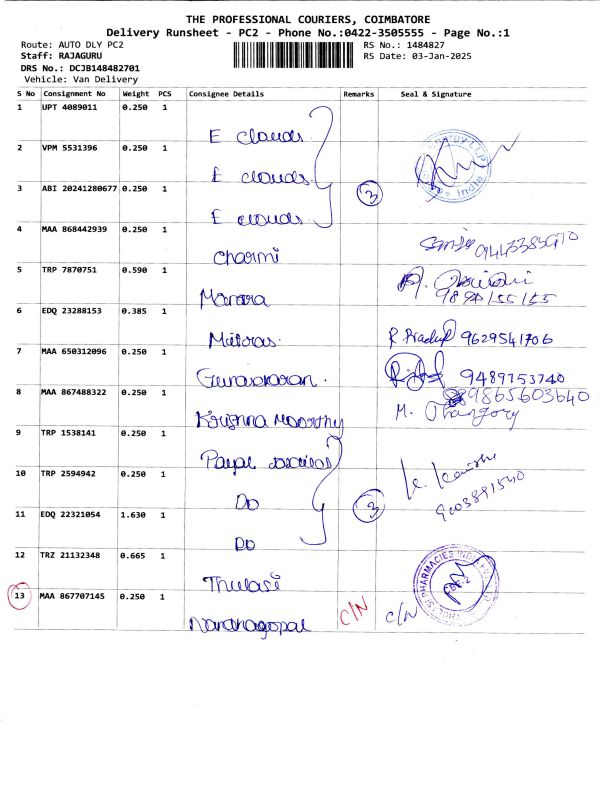 THE PROFESSIONAL COURIERS, COIMBATORE
Delivery Runsheet - PC2 - Phone No.:0422-3505555 - Page No.:1
Route: AUTO DLY PC2
RS No.: 1484827
Staff: RAJAGURU
RS Date: 03-Jan-2025
DRS No.: DCJB148482701
Vehicle: Van Delivery
S No Consignment No Weight PCS Consignee Details Remarks Seal & Signature
1 UPT 4089011 0.250 1 E clouds
2 VPM 5531396 0.250 1 E clouds
3 ABI 20241280677 0.250 1 E clouds 3
4 MAA 868442939 0.250 1 Charmi 9443385970
5 TRP 7870751 0.590 1
6 EDQ 23288153 0.385 1 R. Pradeep 9629541706
7 MAA 650312096 0.250 1 9489153740
8 MAA 867488322 0.250 1 Krishna Moorthy 9865603640
9 TRP 1538141 0.250 1
10 TRP 2594942 0.250 1 Do
11 EDQ 22321054 1.630 1 Do 3
12 TRZ 21132348 0.665 1 Thulasi
13 MAA 867707145 0.250 1 Nandhagopal C/N C/N